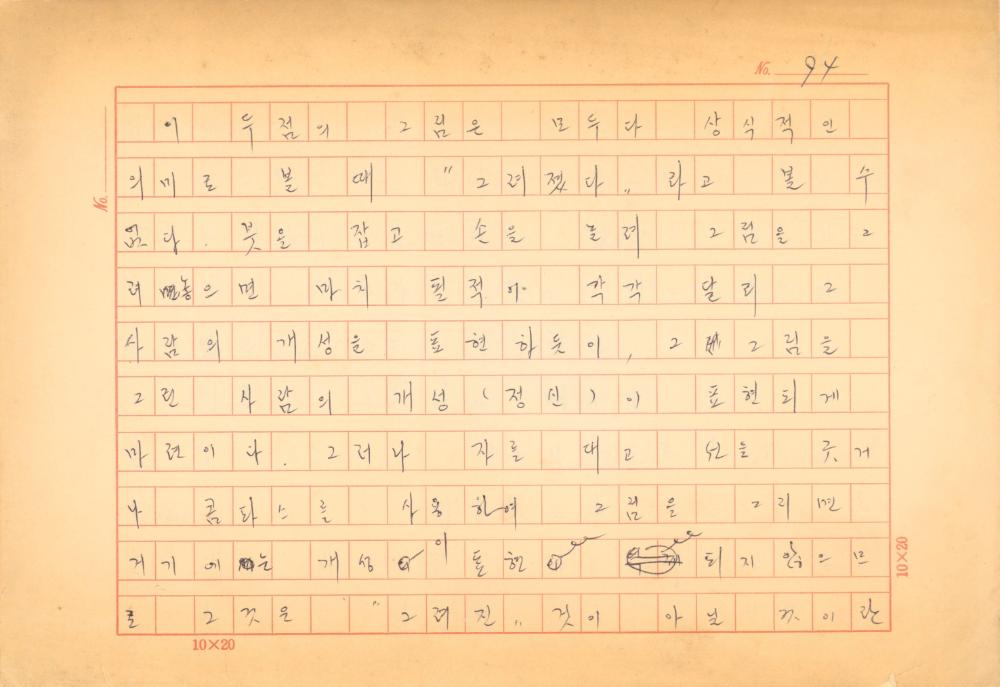 No. 94
No.
이 두점의 그림은 모두다 상식적인
의미로 볼 때 "그려졌다" 라고 볼 수
없다. 붓을 잡고 손을 놀려 그림을 그
려놓으면 마치 필적이 각각 달리 그
사람의 개성을 표현하듯이, 그 그림을
그린 사람의 개성(정신)이 표현되게
마련이다. 그러나 자를 대고 선을 긋거
나 콤파스를 사용하여 그림을 그리면
거기에는 개성이 표현되지 않으므
로 그것은 "그려진" 것이 아닌 것이란
10×20
10×20